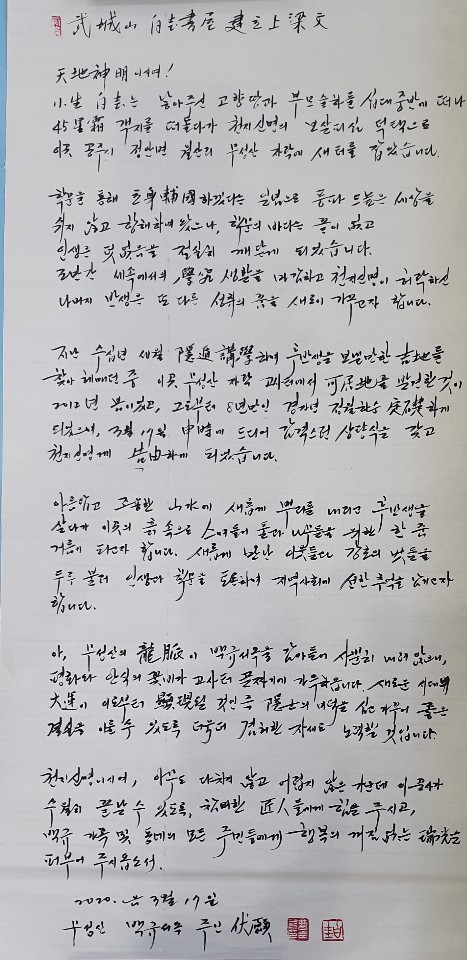 武城山 白圭書屋 建立上梁文
天地神明이시여!
小生 白圭는 낳아주신 고향땅과 부모슬하를 십대중반에 떠나
45星霜 객지를 떠돌다가 천지신명의 보살피심 덕택으로
이곳 공주시 정안면 월산리 무성산 자락에 새터를 잡았습니다.
학문을 통해 立身輔國하겠다는 일념으로 풍파 드높은 세상을
쉬지 않고 항해하여 왔으나, 학문의 바다는 끝이 없고
인생은 덧없음을 절실히 깨닫게 되었습니다.
조만간 세속에서의 생활을 마감하고 천지신명이 허락하신
나머지 반생은 또 다른 성취의 꿈을 새로이 가꾸고자 합니다.
지난 수십년 세월 隱遁講學하며 후반생을 보낼만한 吉地를
찾아 헤매던 중 이곳 무성산 자락 고사터에서 可居地를 발견한 것이
2012년 봄이었고, 그로부터 8년만인 경자년 정월하순 定礎하게
되었으며, 3월 19일 申時에 드디어 감격스런 상량식을 갖고
천지신명께 하게 되었습니다.
아름답고 조용한 山水에 새롭게 뿌리를 내리고 후반생을
살다가 이곳의 흙 속으로 스며들어 풀과 나무들을 위한 한 줌
거름이 되고자 합니다. 새롭게 만난 이웃들과 강호의 벗들을
두루 불러 인생과 학문을 토론하며 지역사회에 선한 추억을 남기고자
합니다.
아, 무성산의 龍脈이 백규서옥을 감아돌며 사뿐히 내려 앉으니,
평화와 안식의 꽃비가 고사터 골짜기에 가득하옵니다. 새로운 시대의
大運이 이로부터 顯現될 것인즉 隱士의 미덕을 심고 가꾸어 좋은
결실을 이룰 수 있도록 더욱더 겸허한 자세로 노력할 것입니다.
천지신명이시여, 아무도 다치지 않고 어렵지 않은 가운데 이 공사가
수월히 끝날 수 있도록, 참여한 匠人들에게 힘을 주시고,
백규 가족 및 동네의 모든 주민들에게 행복의 꺼짐없는 瑞光을
더부어 주시옵소서.
2020. 3월 19일
무성산 백규서옥 주인 伏願